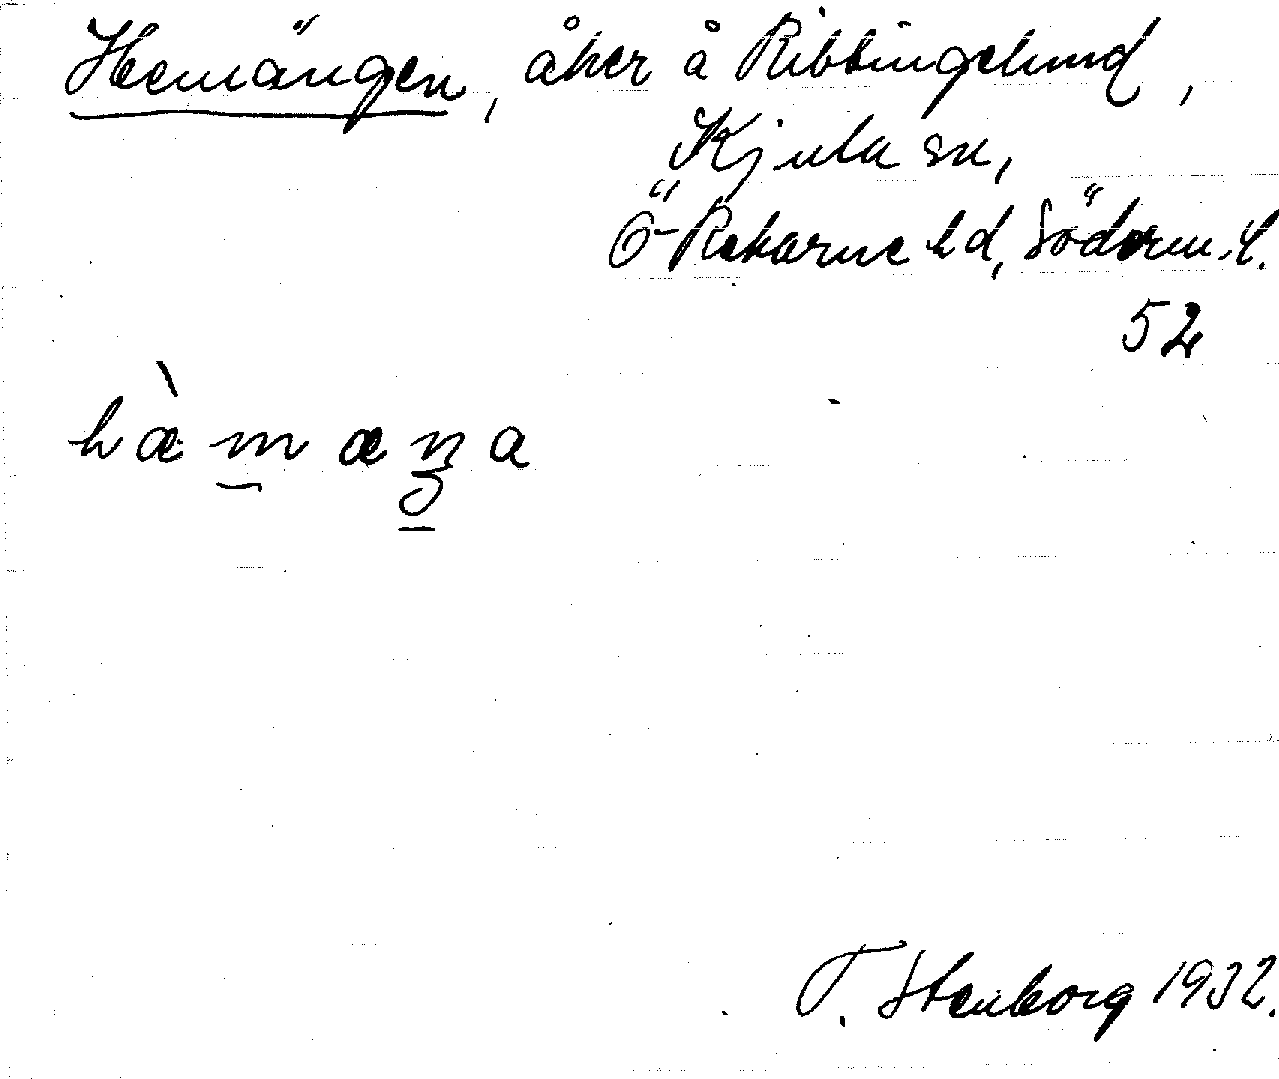 Hemängen, åker å Ribbingelund,
Kjula sn,
Ö-Rekarne hd, Söderm. l.
52
hæ̀m̱æŋa
T. Stenborg 1932.